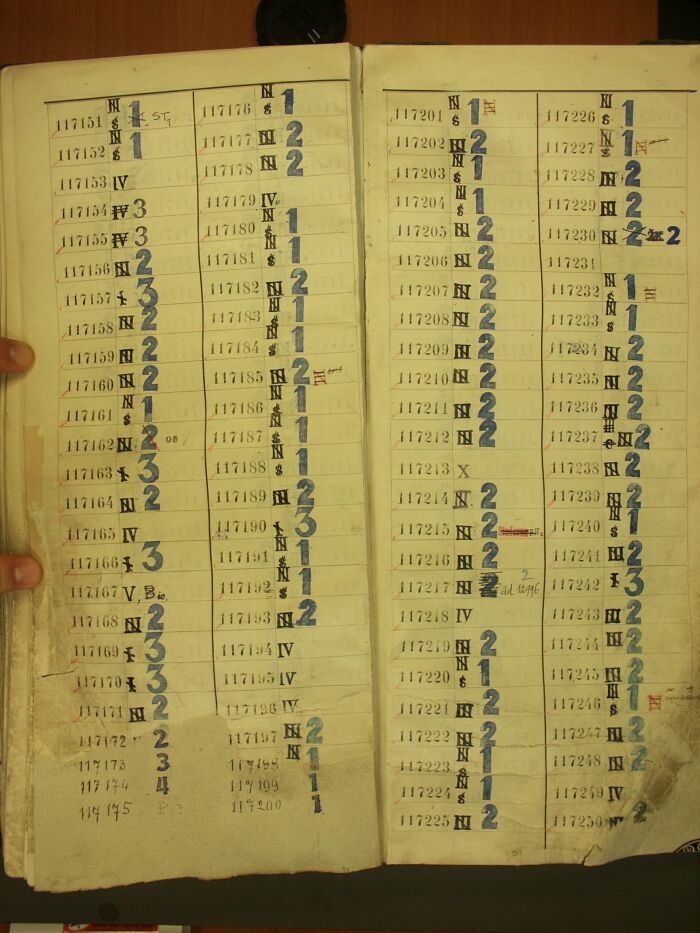 117151 N S 1 ST,
117152 N S 1
117153 IV
117154 IV 3
117155 IV 3
117156 N 2
117157 I 3
117158 N 2
117159 N 2
117160 N 2
117161 N S 1
117162 N 2 OB
117163 I 3
117164 N 2
117165 IV
117166 I 3
117167 V, B
117168 N 2
117169 I 3
117170 I 3
117171 N 2
117172 2
117173 3
117174 4
117175
117176 N S 1
117177 N 2
117178 N 2
117179 IV
117180 N S 1
117181 N S 1
117182 N 2
117183 N S 1
117184 N S 1
117185 N 2 III
117186 N S 1
117187 N S 1
117188 N S 1
117189 N 2
117190 I 3
117191 N S 1
117192 N S 1
117193 N 2
117194 IV
117195 IV
117196 IV
117197 N 2
117198 N 1
117199 1
117200 1
117201 N S 1 IV
117202 N 2
117203 N S 1
117204 N S 1
117205 N 2
117206 N 2
117207 N 2
117208 N 2
117209 N 2
117210 N 2
117211 N 2
117212 N 2
117213 X
117214 N 2
117215 N 2
117216 N 2
117217 N 2 2 ad 12796
117218 IV
117219 N 2
117220 N S 1
117221 N 2
117222 N 2
117223 N S 1
117224 N S 1
117225 N 2
117226 N S 1
117227 N S 1 III
117228 N 2
117229 N 2
117230 N 2 2
117231
117232 N S 1 III
117233 N S 1
117234 N 2
117235 N 2
117236 N 2
117237 N 2
117238 N 2
117239 N 2
117240 N S 1
117241 N 2
117242 I 3
117243 N 2
117244 N 2
117245 N 2
117246 N S 1 III
117247 N 2
117248 N 2
117249 IV
117250 N 2